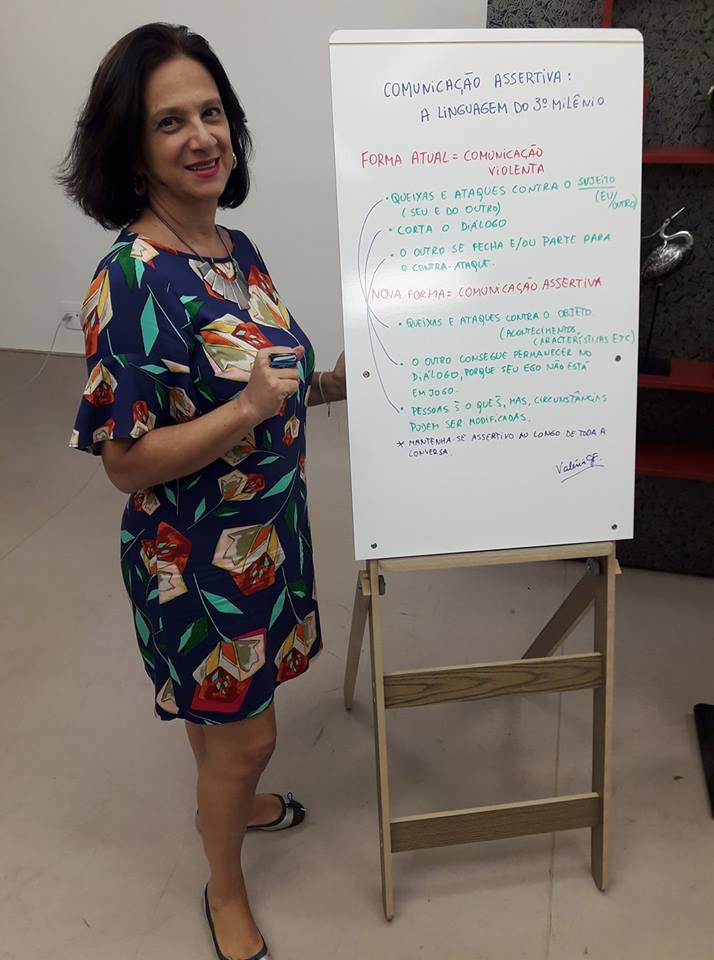 COMUNICAÇÃO ASSERTIVA:
A LINGUAGEM DO 3º MILÊNIO
FORMA ATUAL = COMUNICAÇÃO
VIOLENTA
• QUEIXAS E ATAQUES CONTRA O SUJEITO
(SEU E DO OUTRO) (EU/OUTRO)
• CORTA O DIÁLOGO
• O OUTRO SE FECHA E/OU PARTE PARA
O CONTRA-ATAQUE.
NOVA FORMA = COMUNICAÇÃO ASSERTIVA
• QUEIXAS E ATAQUES CONTRA O OBJETO
(ACONTECIMENTOS,
CARACTERÍSTICAS ETC)
• O OUTRO CONSEGUE PERMANECER NO
DIÁLOGO, PORQUE SEU EGO NÃO ESTÁ
EM JOGO.
• PESSOAS S O QUE S, MAS, CIRCUNSTÂNCIAS
PODEM SER MODIFICADAS.
* MANTENHA-SE ASSERTIVO AO LONGO DE TODA A
CONVERSA.